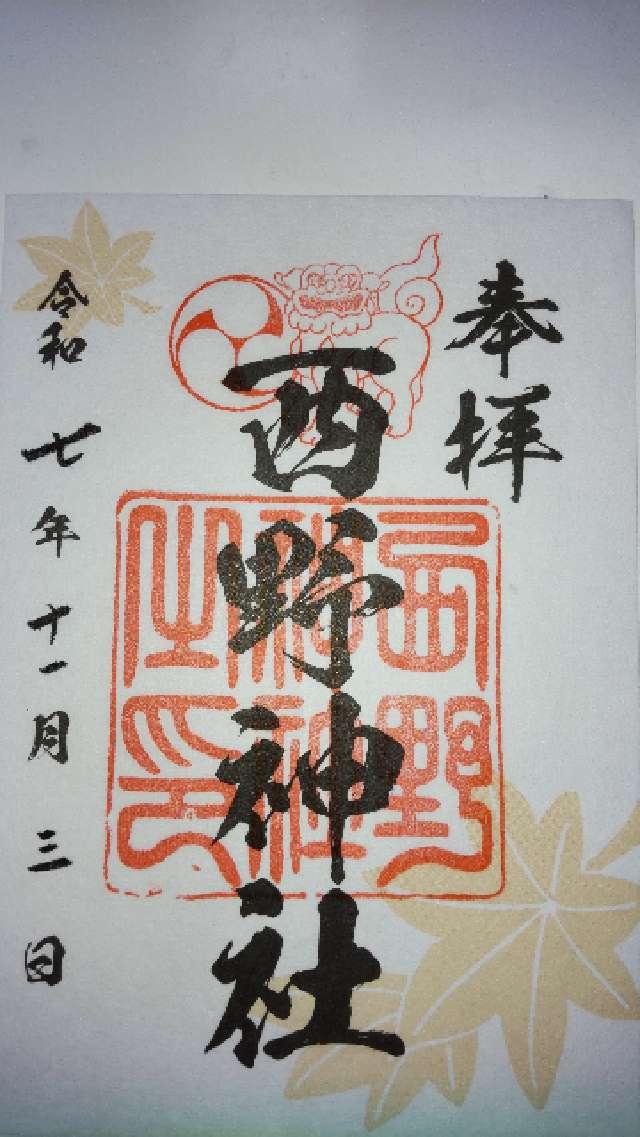 奉拝
西野神社
西野神社之印
令和七年十一月三日